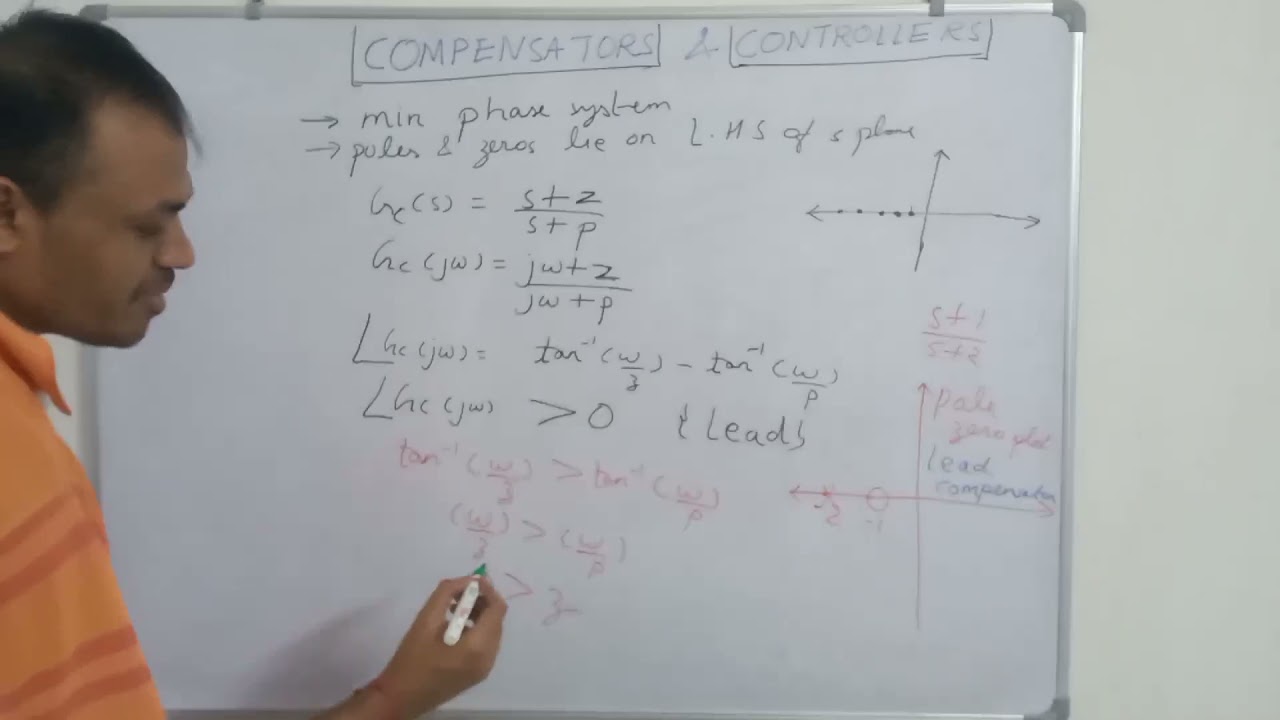 COMPENSATORS & CONTROLLERS
→ min phase system
→ poles & zeros lie on L.HS of s plane
Gc(s) = s+z / s+p
Gc(jω) = jω+z / jω+p
∠Gc(jω) = tan⁻¹(ω/z) – tan⁻¹(ω/p)
∠Gc(jω) > 0 {Lead}
tan⁻¹(ω/z) > tan⁻¹(ω/p)
(ω/z) > (ω/p)
> z
s+1 / s+2
Pole
zero plot
Lead
compensator
-2 -1